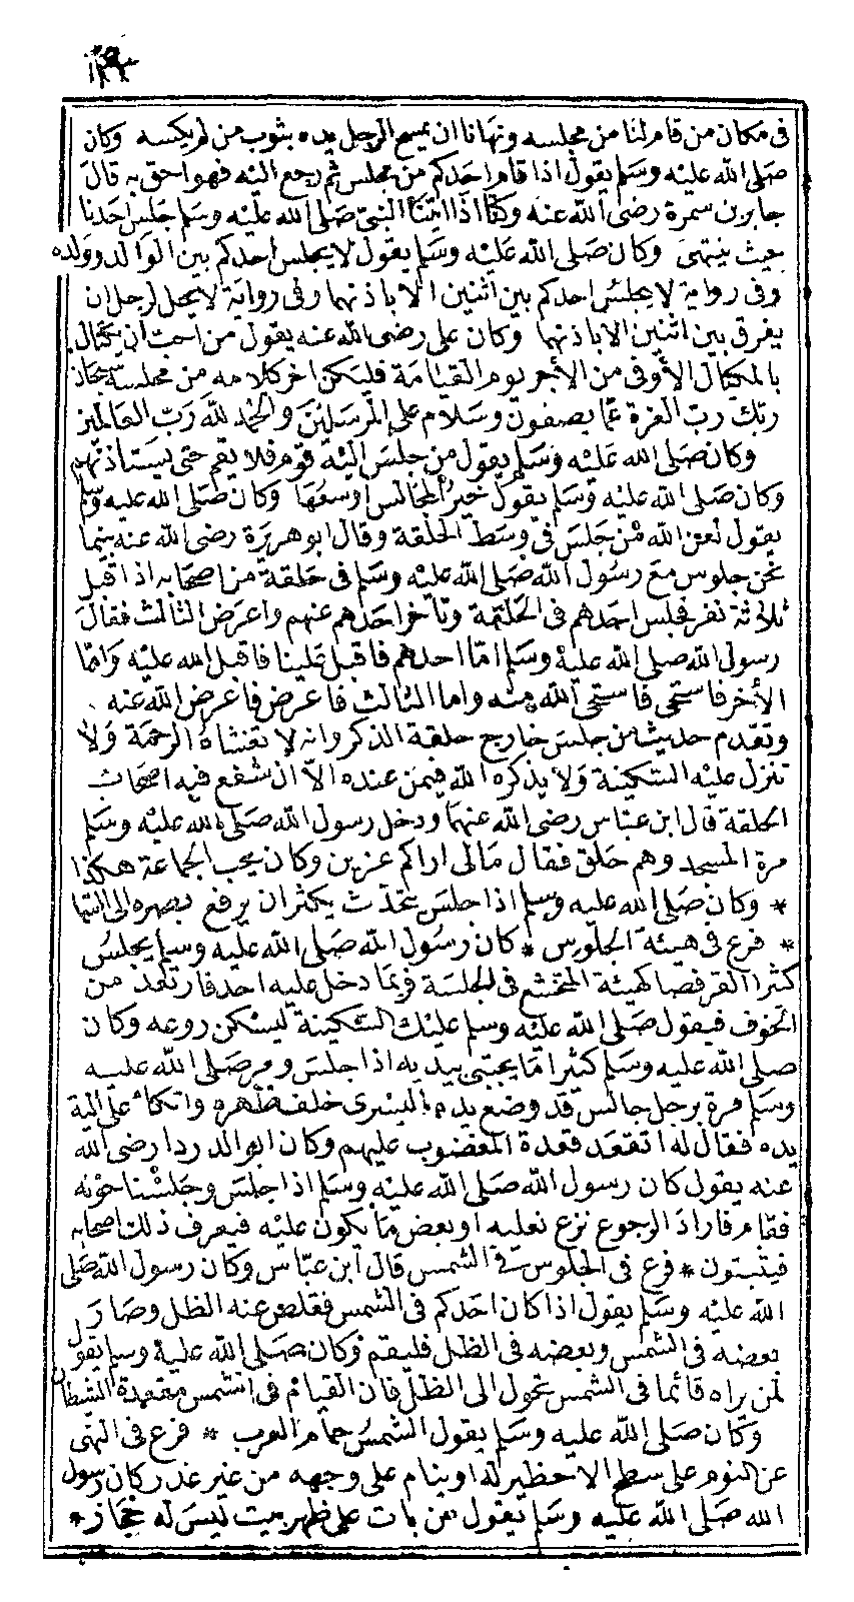 فى مكان من قام لنا من مجلسه ونهانا ان يمسح الرجل يده بثوب من لم يكسه وكان
صلى الله عليه وسلم يقول اذا قام احدكم من مجلس ثم رجع اليه فهو احق به قال
جابر بن سمرة رضى الله عنه وكنا اذا اتينا النبى صلى الله عليه وسلم جلس احدنا
حيث ينتهى وكان صلى الله عليه وسلم يقول لا يجلس احدكم بين الوالد وولده
وفى رواية لا يجلس احدكم بين اثنين الا باذنهما وفى رواية لا يحل لرجل ان
يفرق بين اثنين الا باذنهما وكان على رضى الله عنه يقول من احب ان يكتال
بالمكيال الأوفى من الأجر يوم القيامة فليكن اخر كلامه من مجلسه سبحان
ربك رب العزة عما يصفون وسلام على المرسلين والحمد لله رب العالمين
وكان صلى الله عليه وسلم يقول من جلس اليه قوم فلا يقم حتى يستاذنهم
وكان صلى الله عليه وسلم يقول خير المجالس اوسعها وكان صلى الله عليه وسلم
يقول لعن الله من جلس فى وسط الحلقة وقال ابو هريرة رضى الله عنه بينما
نحن جلوس مع رسول الله صلى الله عليه وسلم فى حلقة من اصحابه اذ اقبل
ثلاثة نفر فجلس احدهم فى الحلقة وتأخر احدهم عنهم واعرض الثالث فقال
رسول الله صلى الله عليه وسلم امّا احدهم فاقبل علينا فاقبل الله عليه وامّا
الأخر فاستحى فاستحى الله منه واما الثالث فاعرض فاعرض الله عنه
وتقدم حديث من جلس خارج حلقة الذكر وانه لا تغشاه الرحمة ولا
تنزل عليه السكينة ولا يذكره الله فيمن عنده الا ان شفع فيه اصحاب
الحلقة قال ابن عباس رضى الله عنهما ودخل رسول الله صلى الله عليه وسلم
مرة المسجد وهم حلق فقال مالى اراكم عزين وكان يحب الجماعة هكذا
* وكان صلى الله عليه وسلم اذا جلس يتحدث يكثر ان يرفع بصره الى السما
* فرع فى هيئة الجلوس * كان رسول الله صلى الله عليه وسلم يجلس
كثيرا القرفصا كهيئة المتخشع فى الجلسة فربما دخل عليه احد فارتعد من
الخوف فيقول صلى الله عليه وسلم عليك السكينة ليسكن روعه وكان
صلى الله عليه وسلم كثيرا مّا يحتبى بيديه اذا جلس ومر صلى الله عليه
وسلم مرة برجل جالس قد وضع يده اليسرى خلف ظهره واتكأ على الية
يده فقال له اتقعد قعدة المغضوب عليهم وكان ابو الدردا رضى الله
عنه يقول كان رسول الله صلى الله عليه وسلم اذا جلس وجلسنا حوله
فقام فاراد الرجوع نزع نعليه او بعض ما يكون عليه فيعرف ذلك اصحابه
فيثبتون * فرع فى الجلوس فى الشمس قال ابن عباس وكان رسول الله صلى
الله عليه وسلم يقول اذا كان احدكم فى الشمس فقلص عنه الظل وصار
بعضه فى الشمس وبعضه فى الظل فليقم وكان صلى الله عليه وسلم يقول
لمن يراه قائما فى الشمس تحول الى الظل فان القيام فى الشمس مقعدة الشيطان
وكان صلى الله عليه وسلم يقول الشمس حمام العرب * فرع فى النهى
عن النوم على سطح لا حظير له او ينام على وجهه من غير عذر كان رسول
الله صلى الله عليه وسلم يقول من بات على ظهر بيت ليس له حجاز *